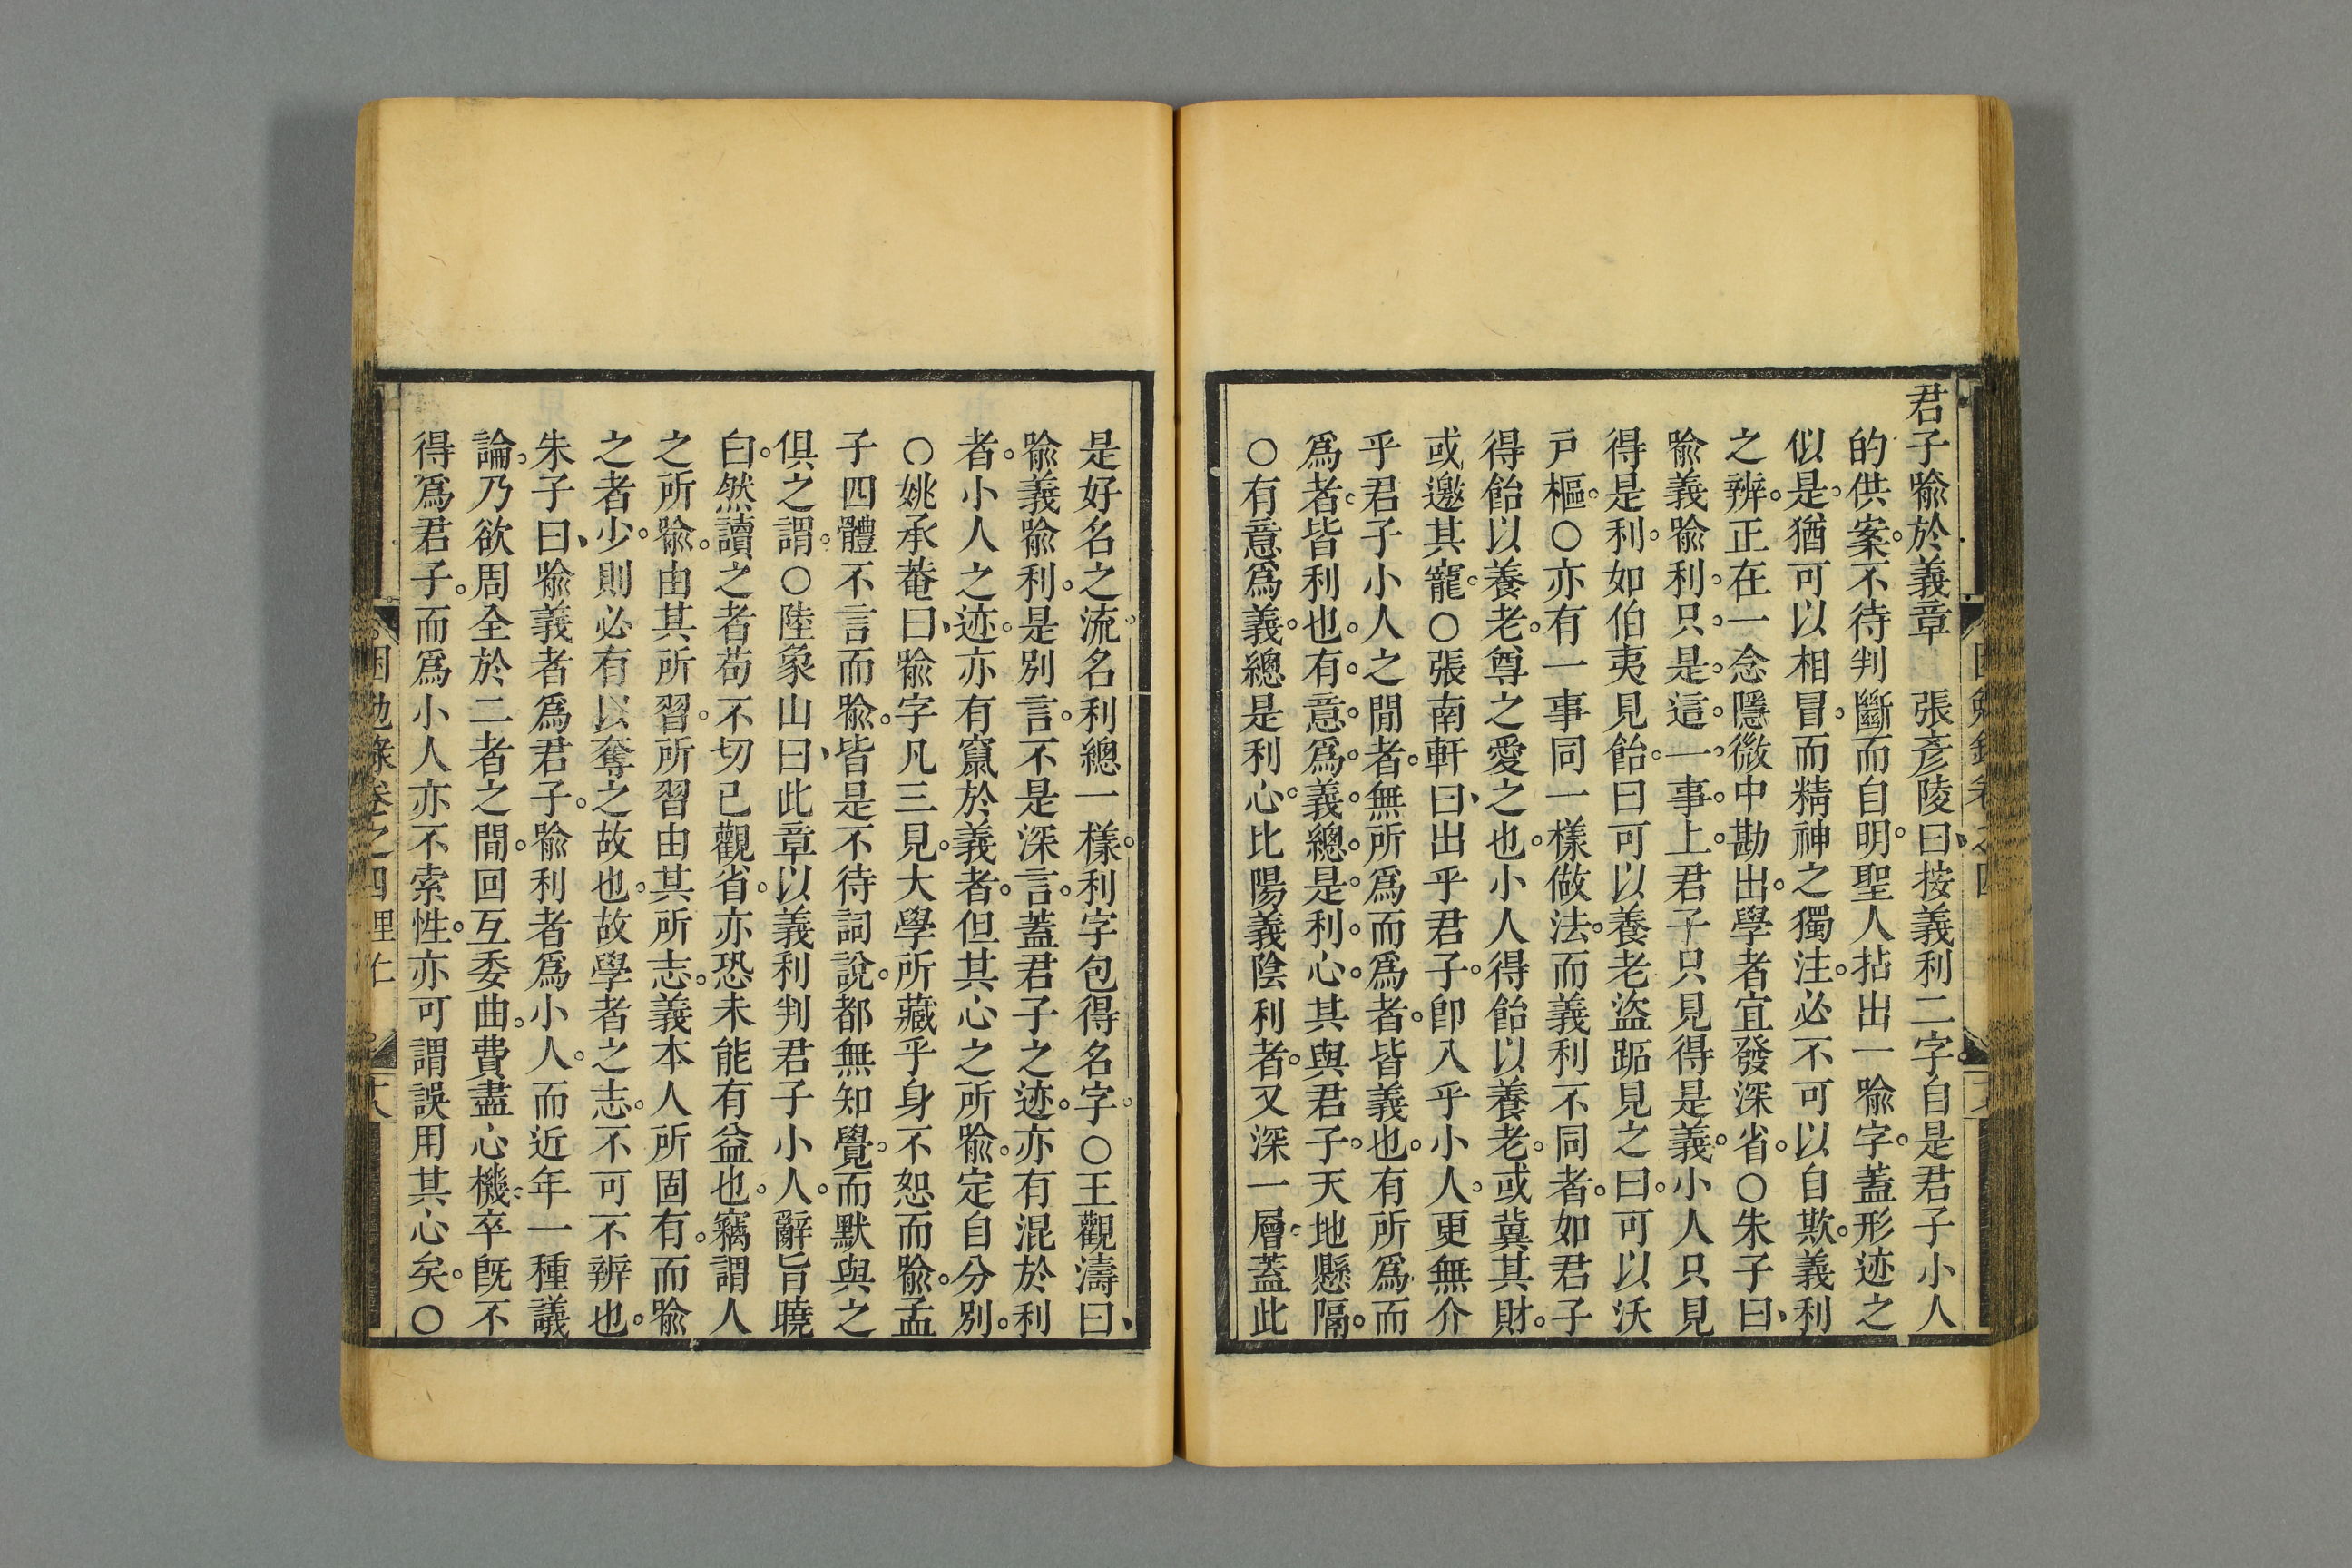 君子喩於義章　張彥陵曰、按義利二字。自是君子小人
的供案。不待判斷而自明。聖人拈出一喩字。蓋形迹之
似是。猶可以相冒。而精神之獨注。必不可以自欺。義利
之辨。正在一念隱微中勘出。學者宜發深省。○朱子曰、
喩義喩利。只是這一事上。君子只見得是義。小人只見
得是利。如伯夷見飴。曰可以養老。盜跖見之。曰可以沃
戸樞。○亦有一事同一樣做法。而義利不同者。如君子
得飴以養老。尊之愛之也。小人得飴以養老。或冀其財。
或邀其寵。○張南軒曰、出乎君子。卽入乎小人。更無介
乎君子小人之閒者。無所爲而爲者。皆義也。有所爲而
爲者。皆利也。有意爲義。總是利心。其與君子。天地懸隔。
○有意爲義。總是利心。比陽義陰利者。又深一層。蓋此
是好名之流。名利總一樣。利字包得名字。○王觀濤曰、
喩義喩利。是別言。不是深言。蓋君子之迹。亦有混於利
者。小人之迹。亦有竄於義者。但其心之所喩。定自分別。
○姚承菴曰、喩字凡三見。大學所藏乎身不恕而喩。孟
子四體不言而喩。皆是不待詞說。都無知覺。而默與之
俱之謂。○陸象山曰、此章以義利判君子小人。辭旨曉
白。然讀之者苟不切己觀省。亦恐未能有益也。竊謂人
之所喩。由其所習。所習由其所志。義本人所固有。而喩
之者少。則必有以奪之故也。故學者之志。不可不辨也。
朱子曰、喩義者爲君子。喩利者爲小人。而近年一種議
論。乃欲周全於二者之間。回互委曲。費盡心機。卒旣不
得爲君子。而爲小人亦不索性。亦可謂誤用其心矣。○
困勉錄卷之四 里仁 十八